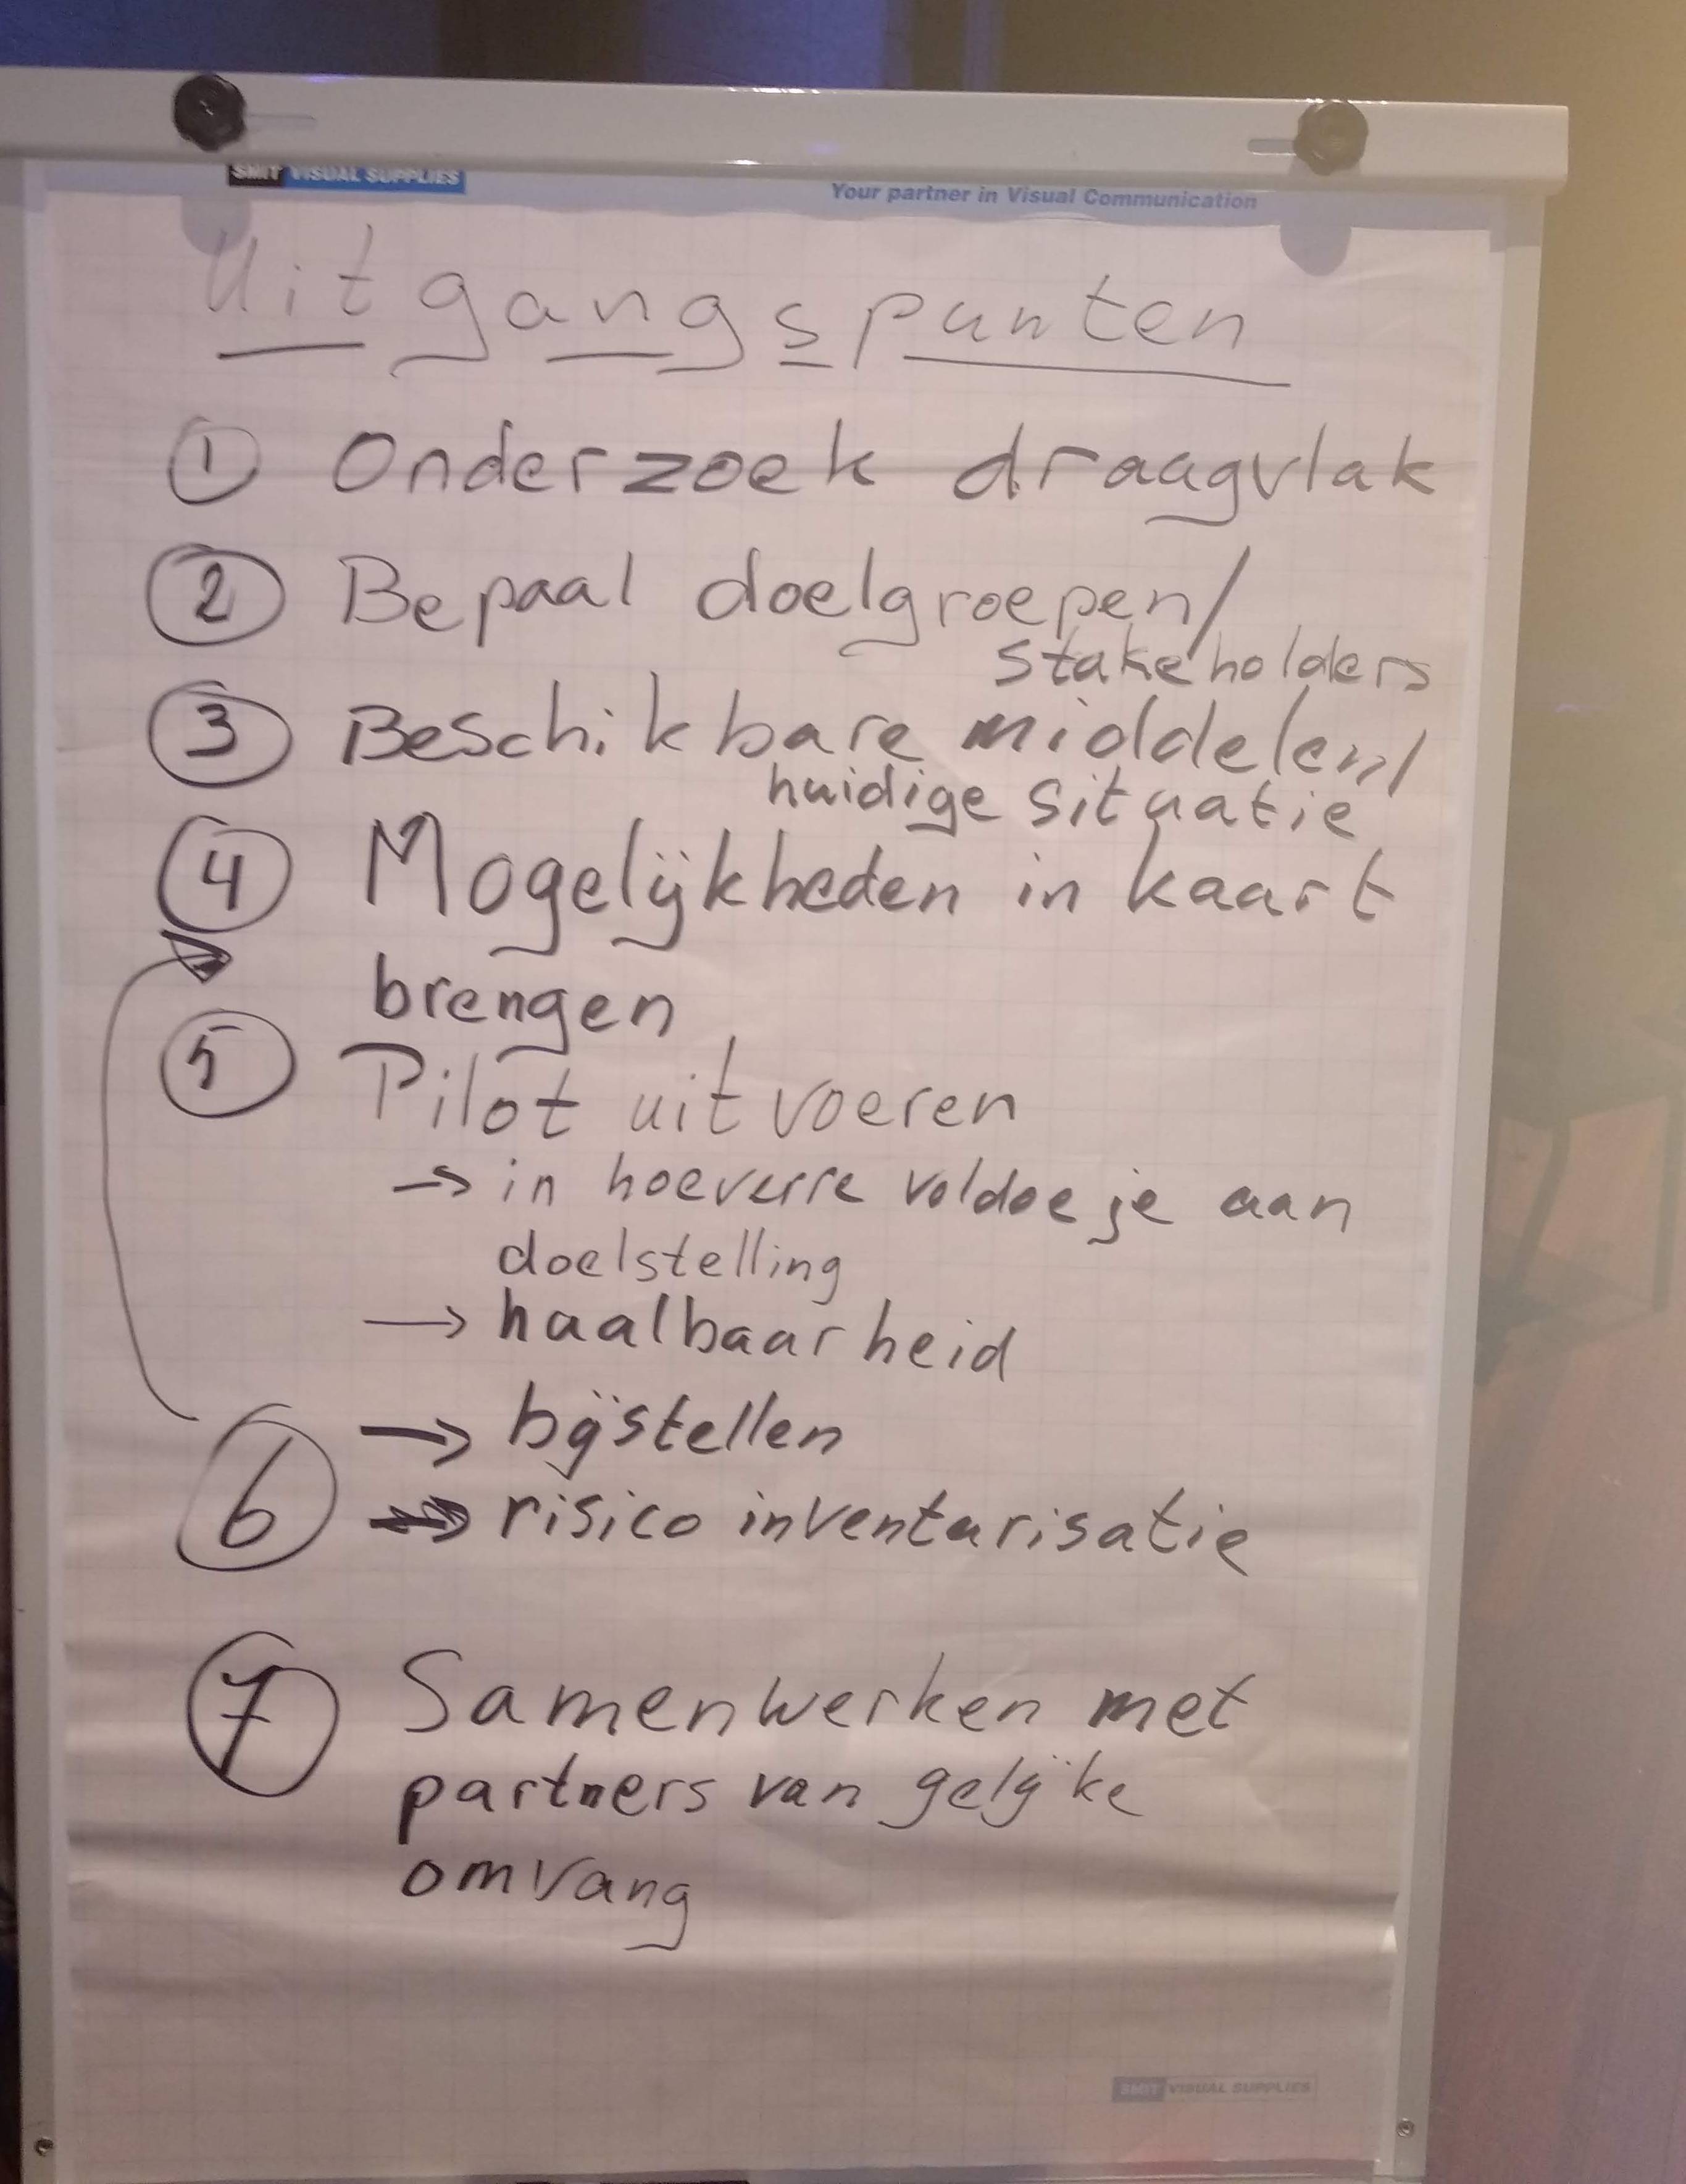 SMIT VISUAL SUPPLIES
Your partner in Visual Communication
Uitgangspunten
1 Onderzoek draagvlak
2 Bepaal doelgroepen/
stakeholders
3 Beschikbare middelen/
huidige situatie
4 Mogelijkheden in kaart
brengen
5 Pilot uitvoeren
→ in hoeverre voldoe je aan
doelstelling
→ haalbaarheid
6 → bijstellen
→ risico inventarisatie
7 Samenwerken met
partners van gelijke
omvang
SMIT VISUAL SUPPLIES